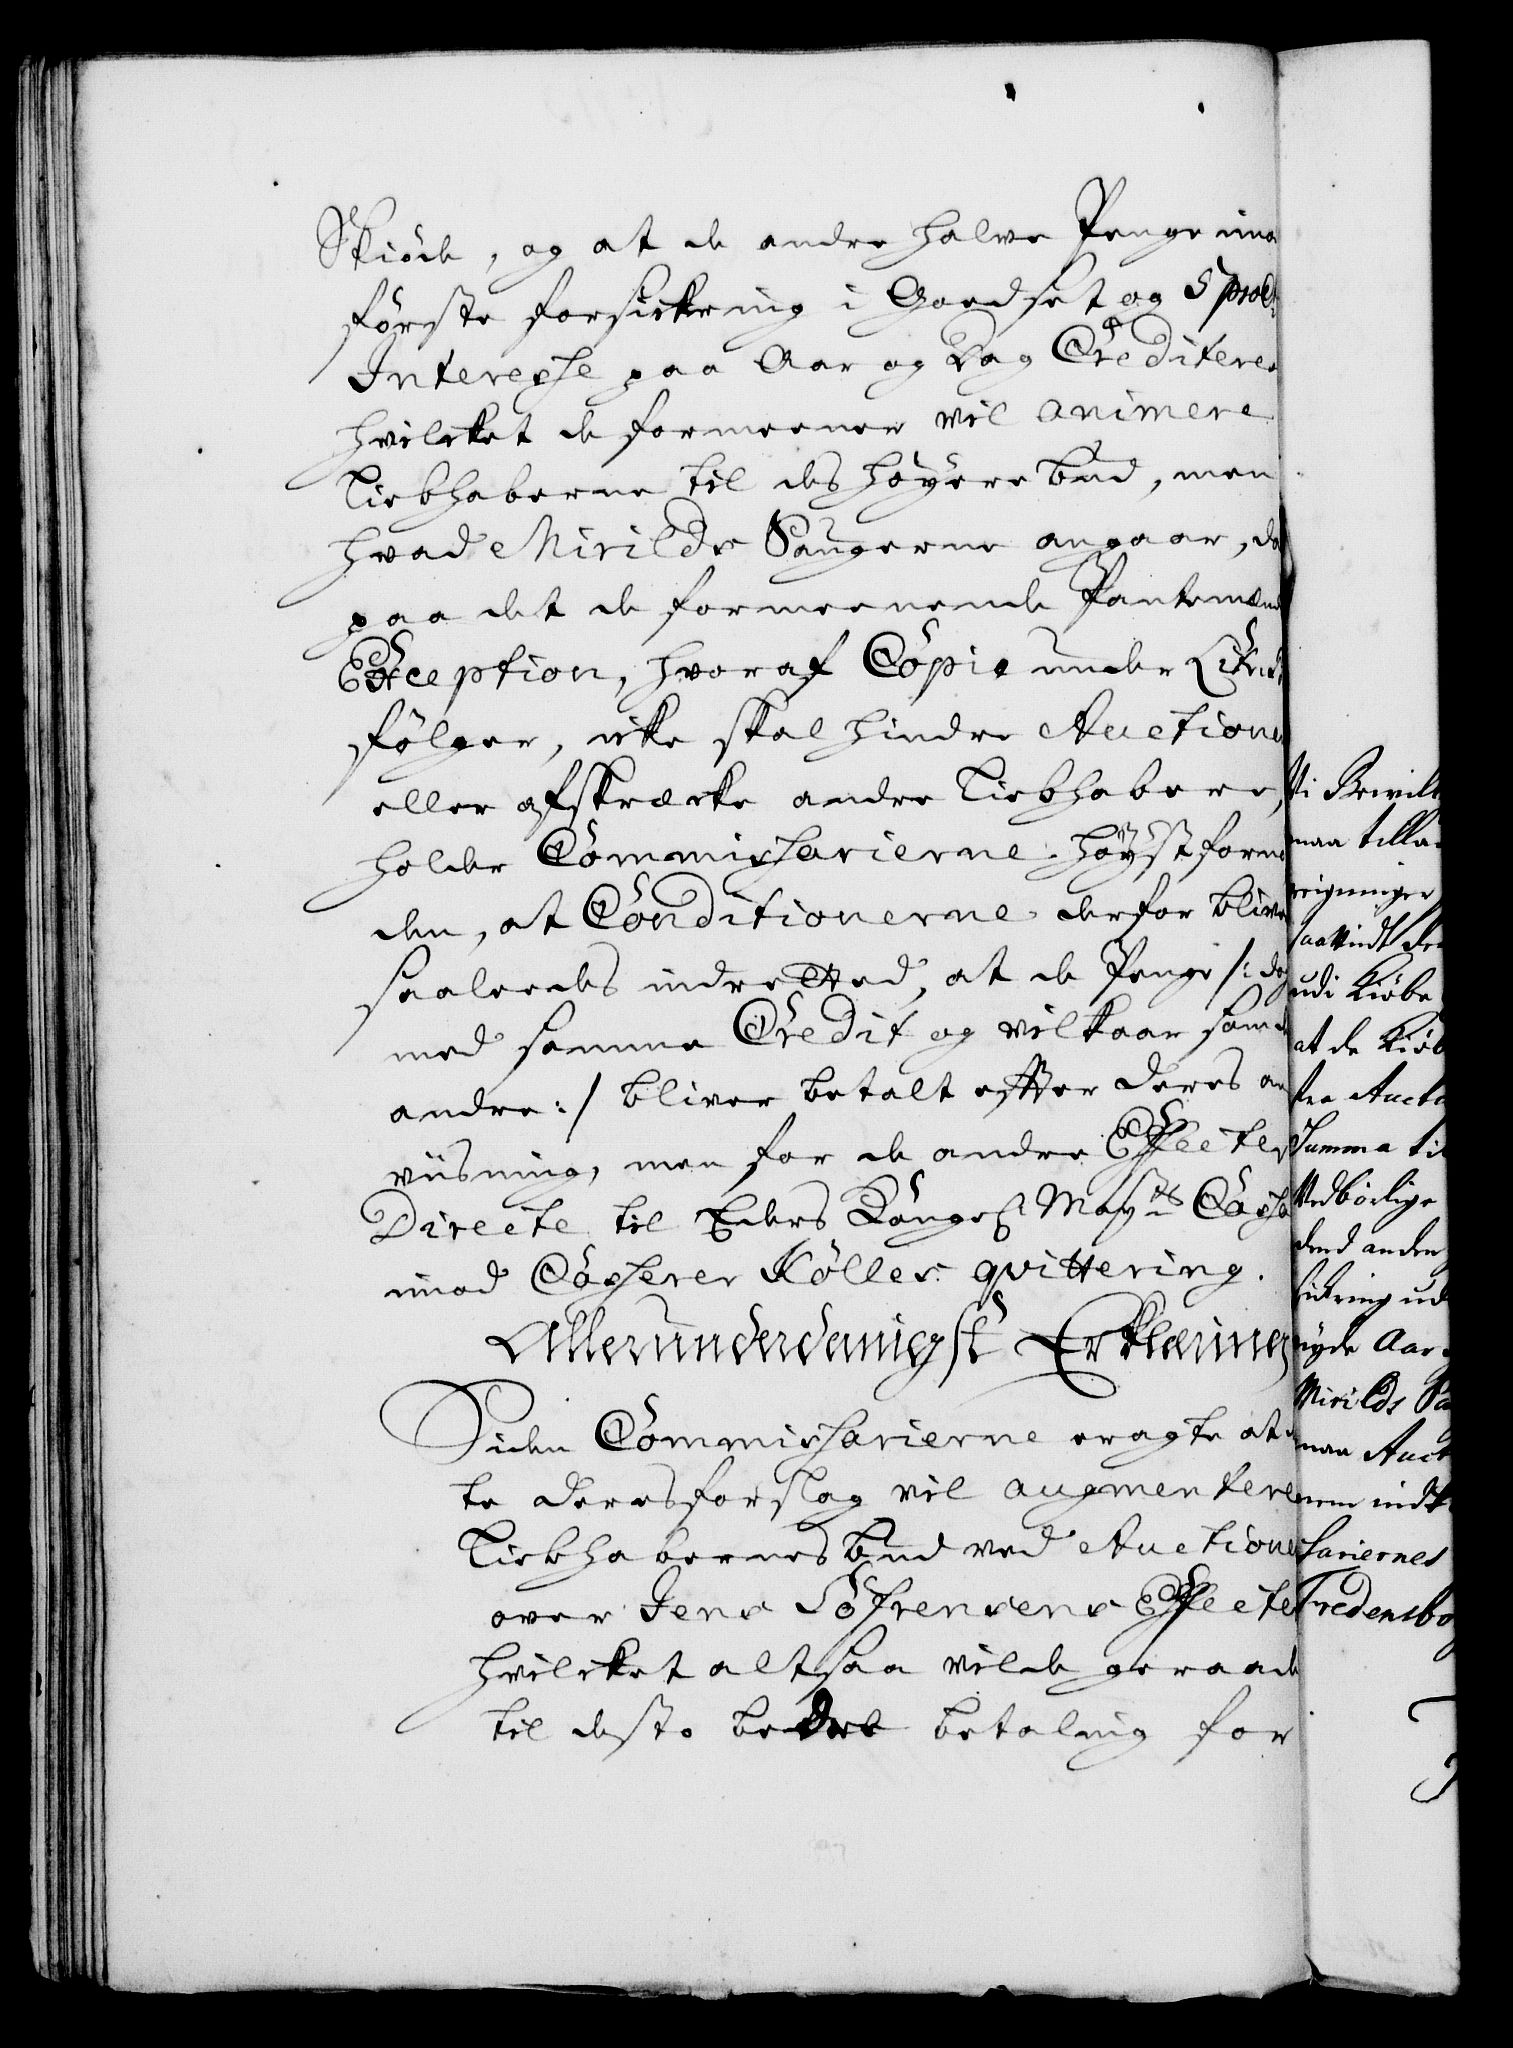 Skiöde, og at de andre halve Penge imo
förste forsickring i Goedset og 5 proCt
Interesse paa Aar og Dag Creditere
hvilcket de formeener vil animere
Liebhaberne til des höyere bud, men
hvad Mirilds Saugerne angaar, da
paa det de formeenende Pantemænd
Exception, hvoraf Copie under
fölger, icke skal hindre Auctione
eller afskræcke andre Liebhabere,
holder Commissarierne höyst forno
den, at Conditionerne derfor blive
saaleedes indretted, at de Penge /: dog
med samme Credit og vilkaar som d
andre :/ bliver betalt efter deres an
viisning, men for de andre Effecter
Directe til Eders Kongel May:ts Casse
imod Casserer Kölles qvittering.
Allerunderdanigst Erklæring
Siden Commissarierne eragte at
te deres forslag vil augmentere
Liebhabernes bud ved Auctione
over Jens Söfrensens Effecte
hvilcket altsaa vilde geraade
til desto bedre betaling for
Vi Bevil
maa tilla
eigninger
saavidt de
udi Kiöbe
at de Kiöb
fra Auct
Summa til
Vedbörlige
dend anden
sickring ud
niyde Aar
Mirilds Sa
maa Auct
nem indk
sariernes
Fredensbo